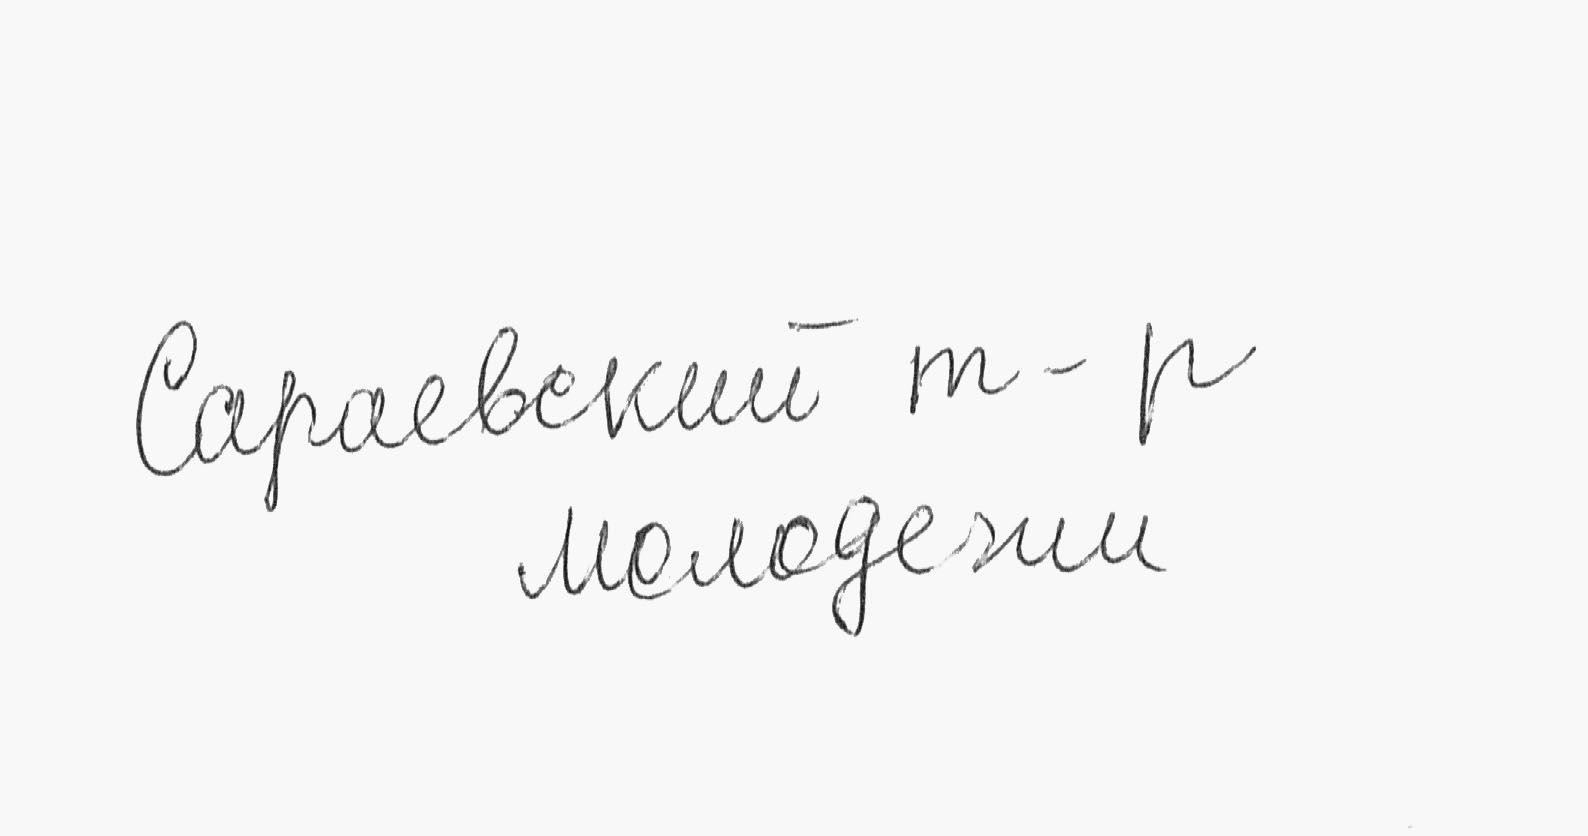 Сараевский т-р
молодежи